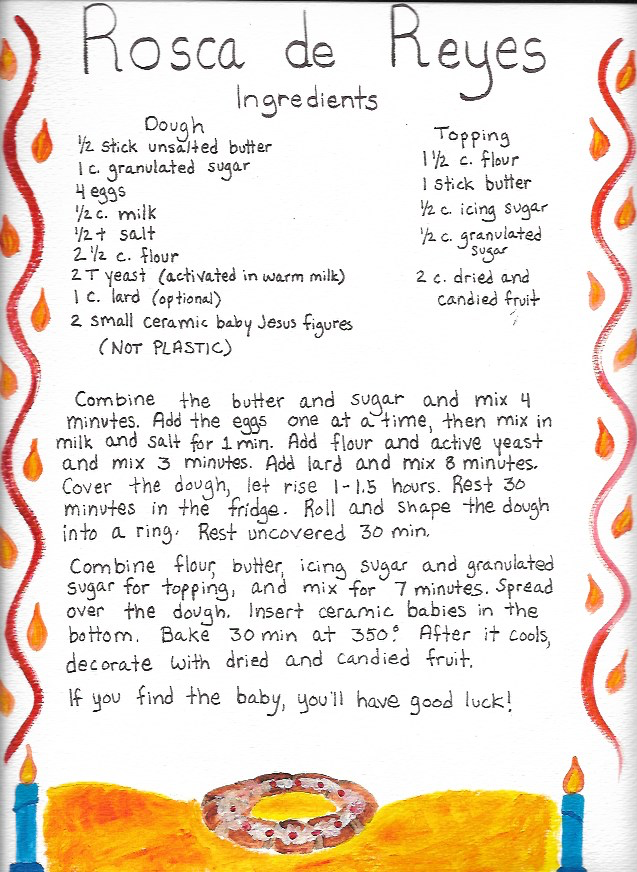 Rosca de Reyes
Ingredients
Dough
1/2 stick unsalted butter
1 c. granulated sugar
4 eggs
1/2 c. milk
1/2 t salt
2 1/2 c. flour
2 T yeast (activated in warm milk)
1 c. lard (optional)
2 small ceramic baby Jesus figures
(NOT PLASTIC)
Topping
1 1/2 c. flour
1 stick butter
1/2 c. icing sugar
1/2 c. granulated
sugar
2 c. dried and
candied fruit
Combine the butter and sugar and mix 4
minutes. Add the eggs one at a time, then mix in
milk and salt for 1 min. Add flour and active yeast
and mix 3 minutes. Add lard and mix 8 minutes.
Cover the dough, let rise 1-1.5 hours. Rest 30
minutes in the fridge. Roll and shape the dough
into a ring. Rest uncovered 30 min.
Combine flour, butter, icing sugar and granulated
sugar for topping, and mix for 7 minutes. Spread
over the dough. Insert ceramic babies in the
bottom. Bake 30 min at 350°. After it cools,
decorate with dried and candied fruit.
If you find the baby, you'll have good luck!